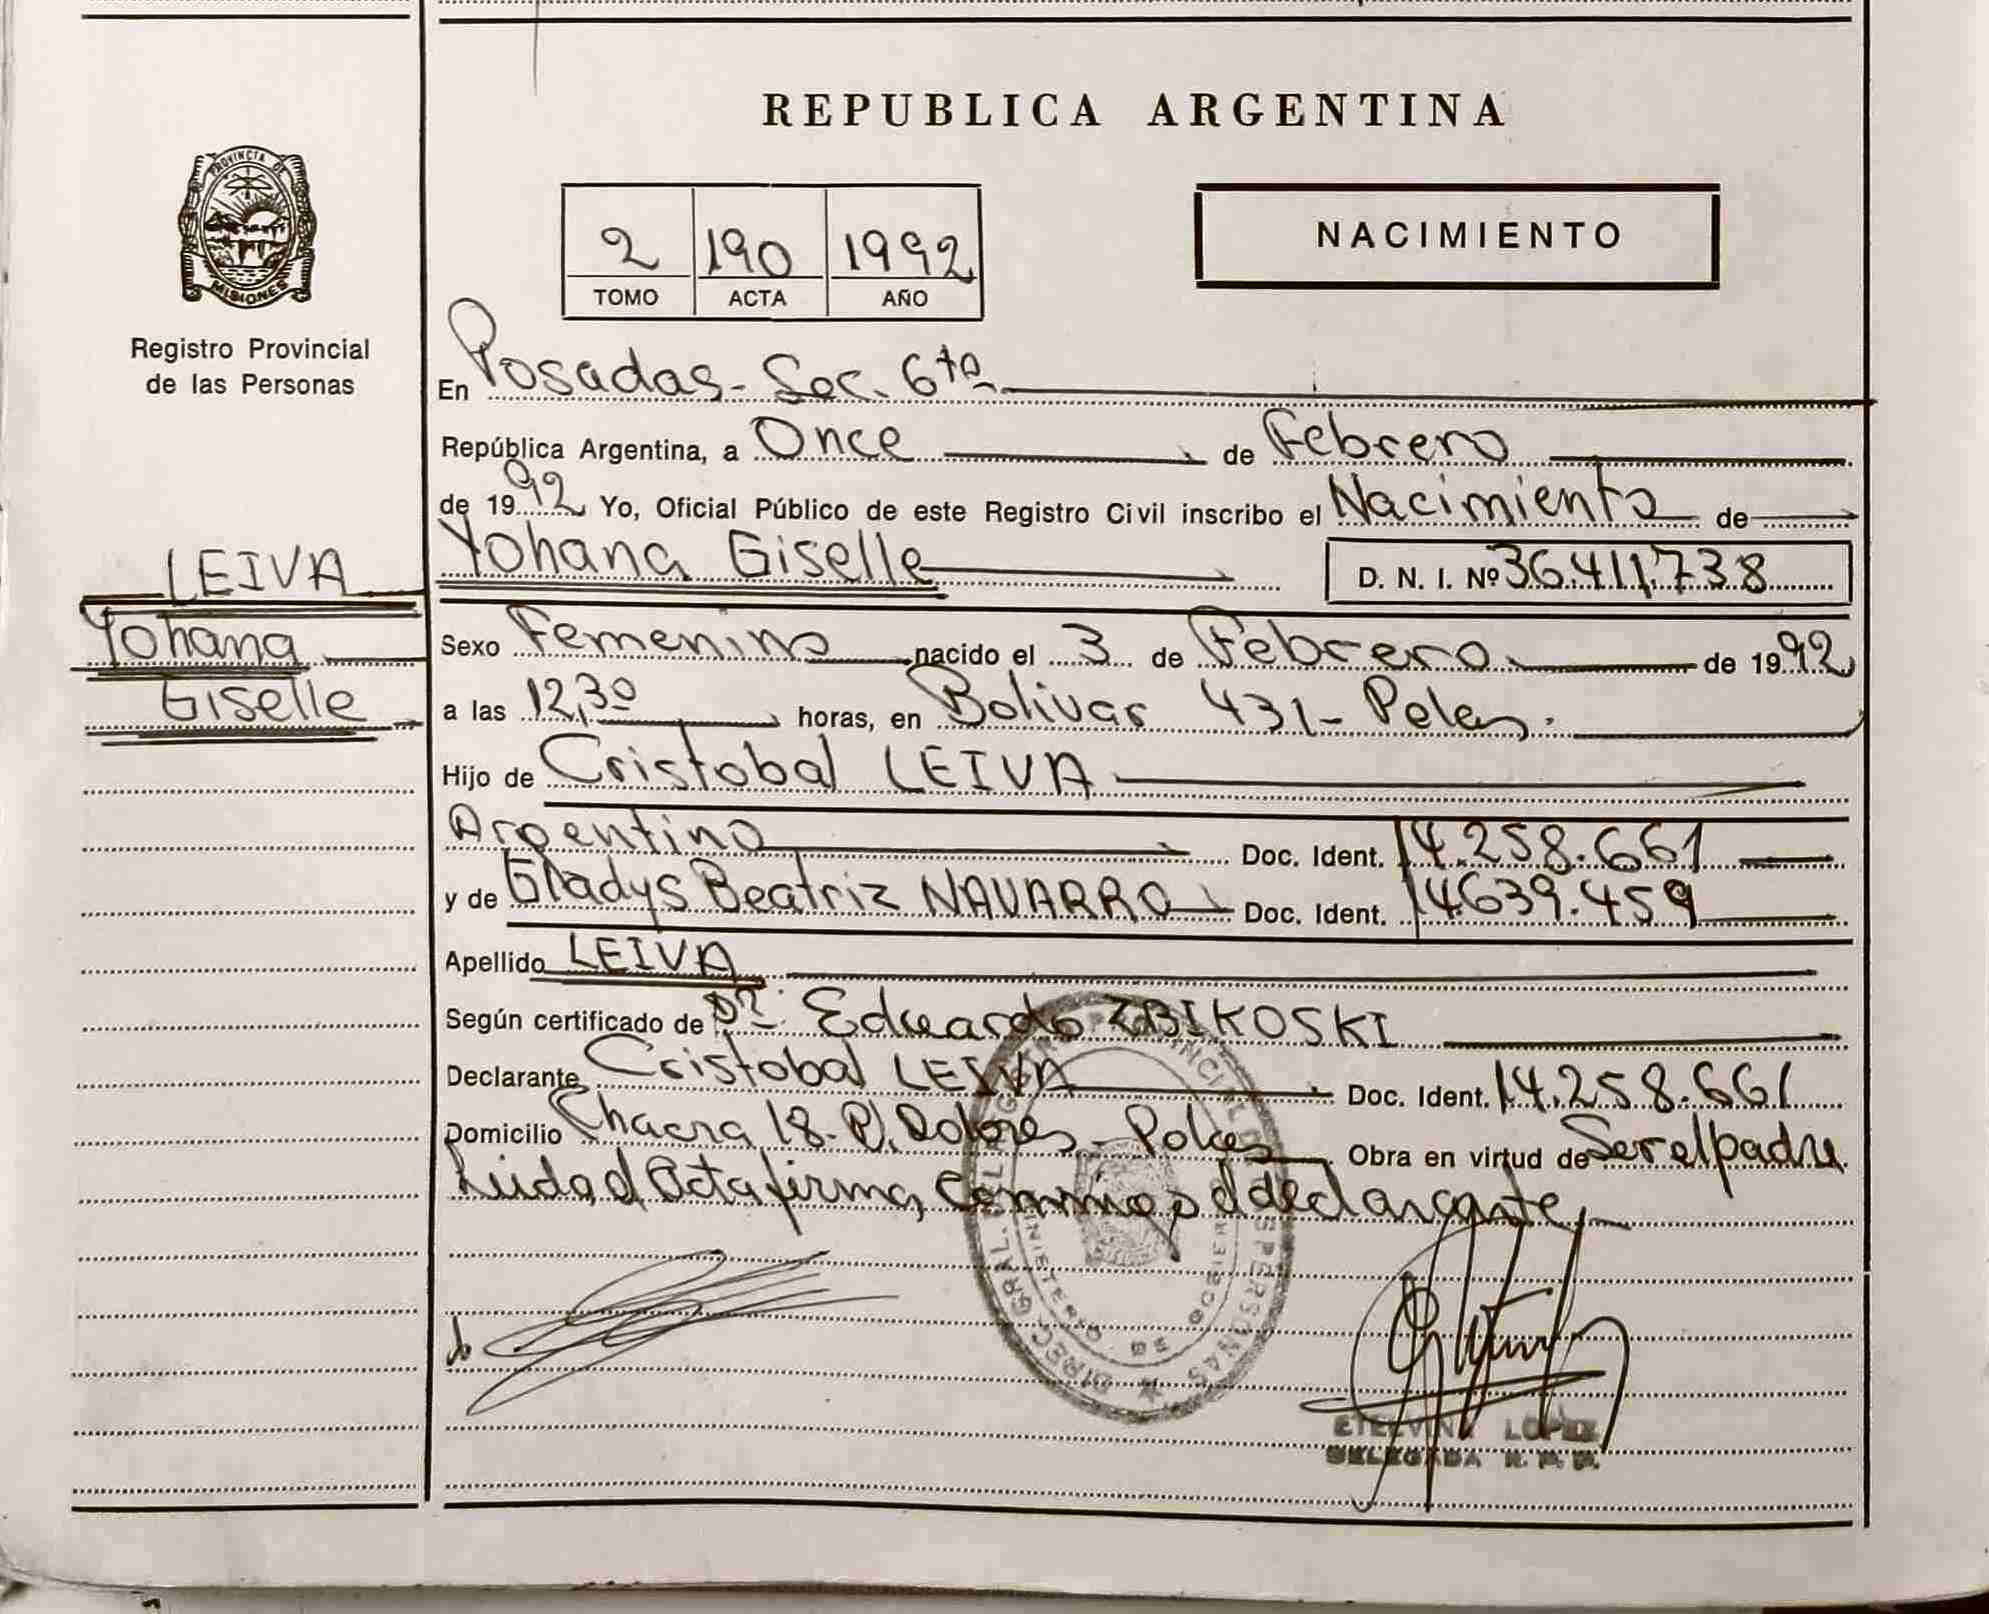 REPUBLICA ARGENTINA
PROVINCIA DE
MISIONES
Registro Provincial
de las Personas
2 190 1992
TOMO ACTA AÑO
NACIMIENTO
En Posadas - Sec. 6ta
República Argentina, a Once de Febrero
de 1992 Yo, Oficial Público de este Registro Civil inscribo el Nacimiento de
Yohana Giselle D. N. I. Nº 36.411.738
LEIVA
Yohana
Giselle
Sexo Femenino nacido el 3 de Febrero de 1992
a las 12,30 horas, en Bolivar 431 -
Hijo de Cristobal LEIVA
Argentino Doc. Ident. 14.258.661
y de Gladys Beatriz NAVARRO Doc. Ident. 14.639.459
Apellido LEIVA
Según certificado de Dr. Eduardo ZBIKOSKI
Declarante Cristobal LEIVA Doc. Ident. 14.258.661
Domicilio Chacra 18 - Dolores - Obra en virtud de Ser el padre
Leida el Acta firma, Conmigo el declarante
DIREC. GRAL. DEL REGISTRO PROVINCIAL DE LAS PERSONAS
MINISTERIO DE GOBIERNO
ETELVINA LOPEZ
DELEGADA R. P. P.